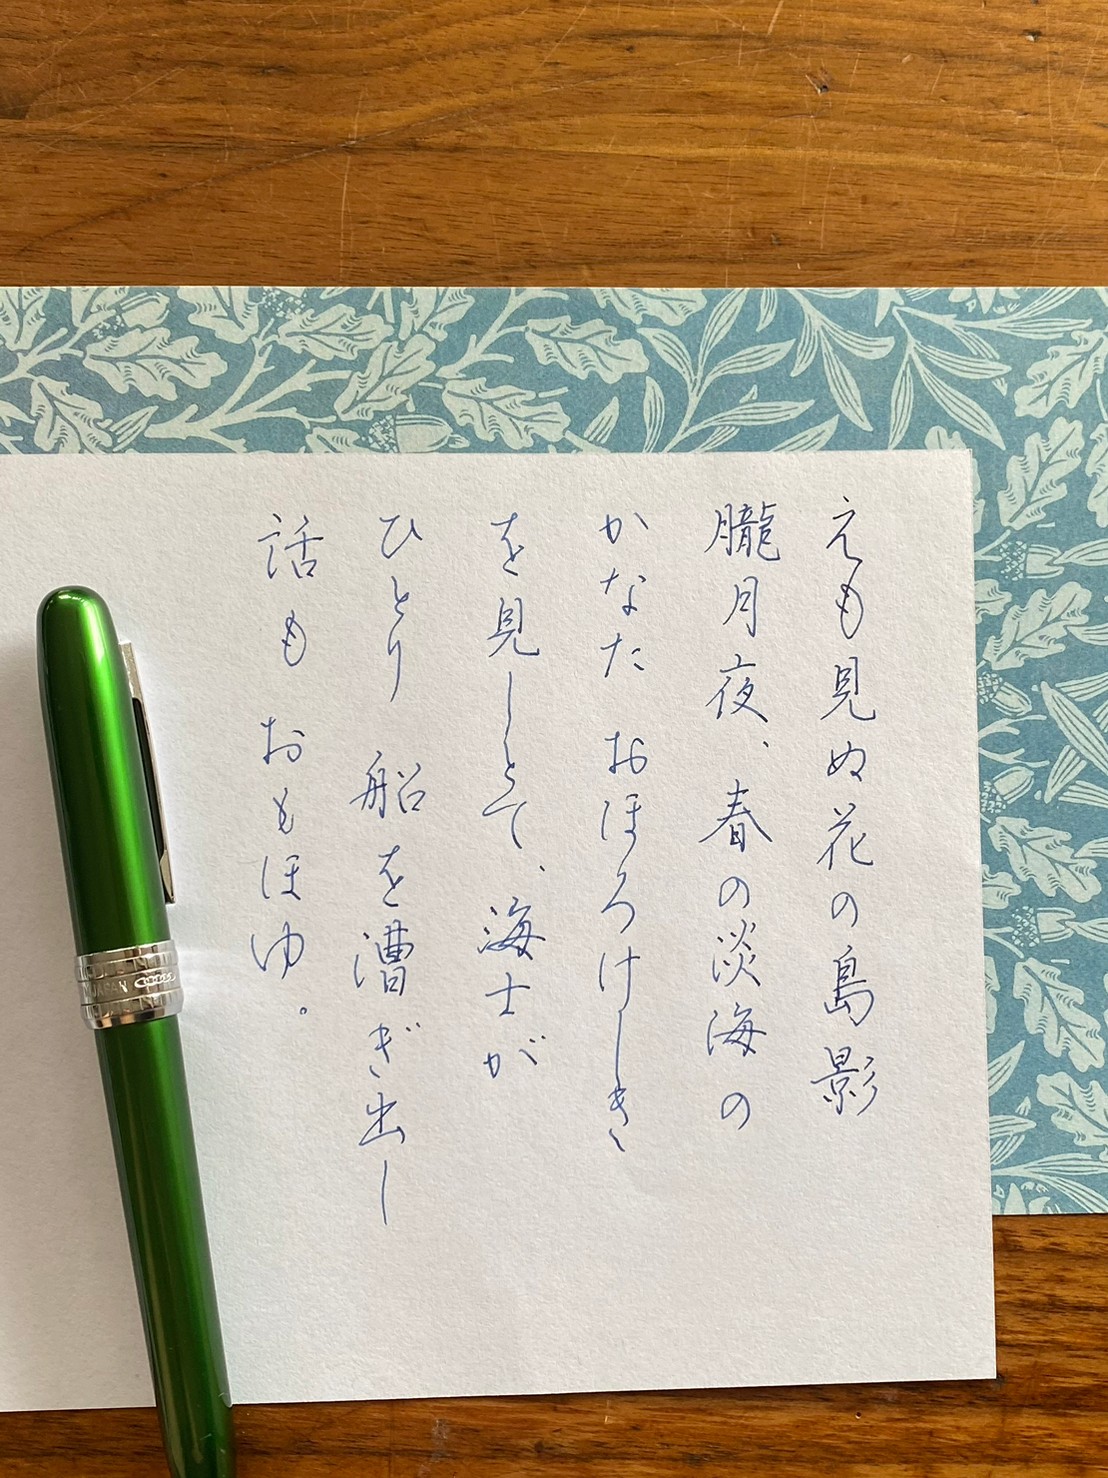 えも見ぬ花の島影
朧月夜、春の淡海の
かなた おぼろけしき
を見しとて、海士が
ひとり 船を漕ぎ出し
話も おもほゆ。
JAPAN